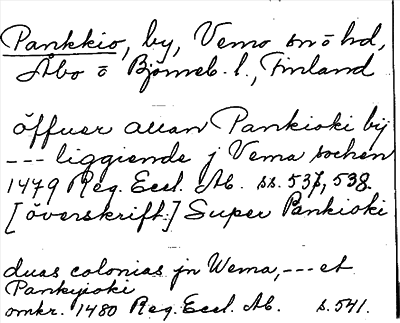 Pankkio, by, Vemo sn o hd,
Åbo o Björneb. l., Finland
öffuer allan Pankioki bij
--- liggiende j Vema sochen
1479 Reg. Eccl. Ab. ss. 537, 538.
[överskrift:] Super Pankioki
duas colonias jn Wema, --- et
Pankyioki
omkr. 1480 Reg. Eccl. Ab. s. 541.